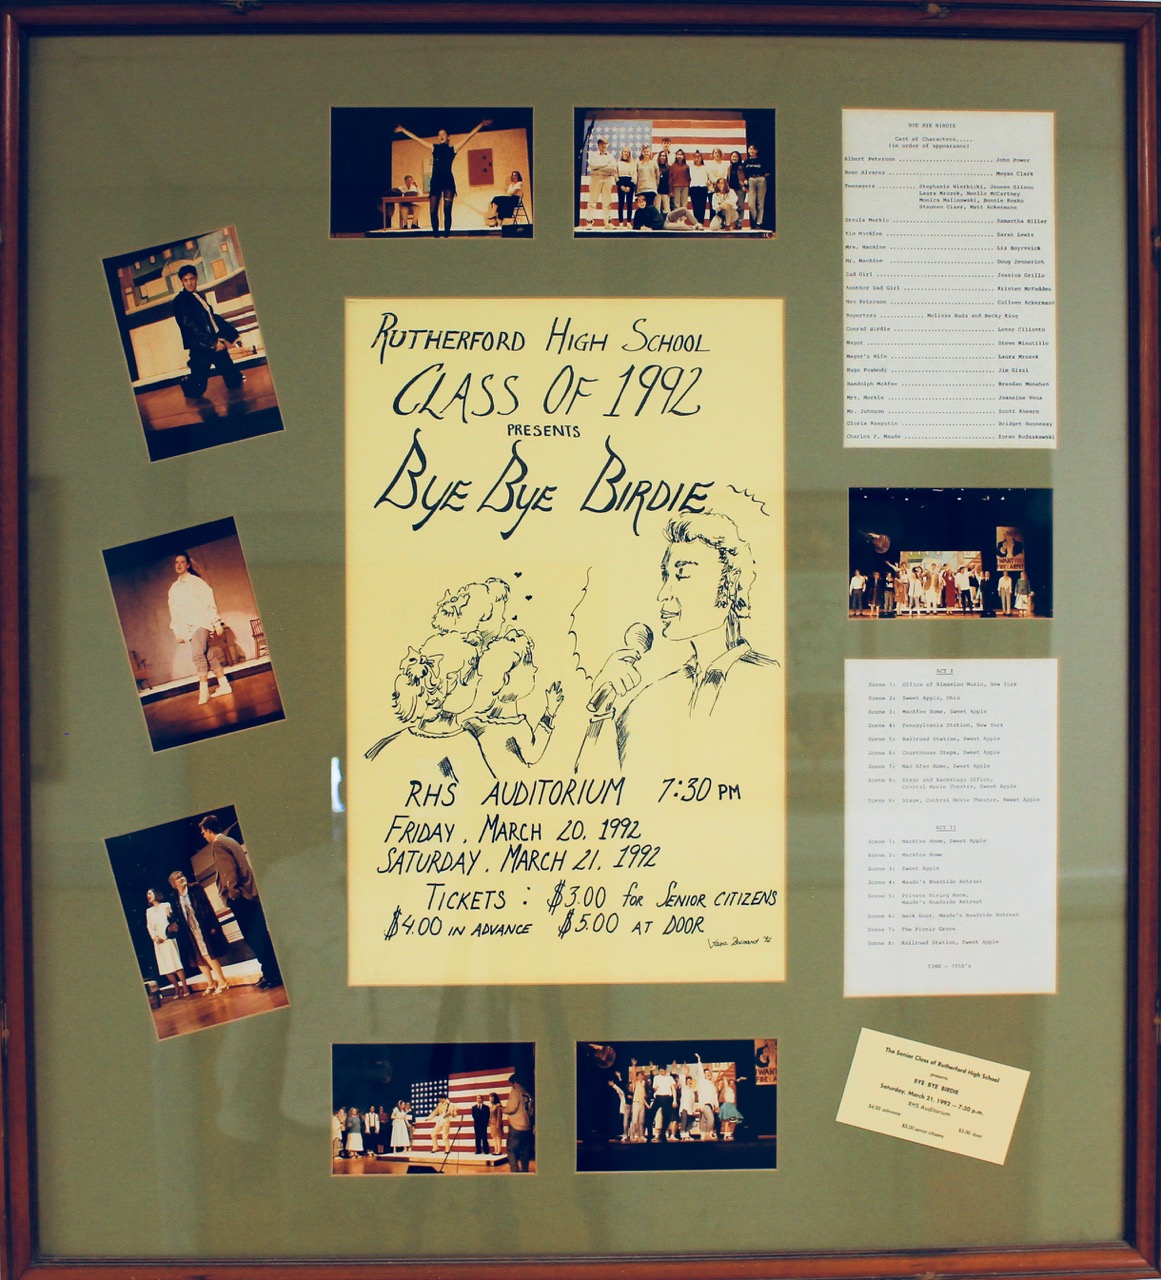 RUTHERFORD HIGH SCHOOL
CLASS OF 1992
PRESENTS
BYE BYE BIRDIE
RHS AUDITORIUM 7:30 PM
FRIDAY, MARCH 20, 1992
SATURDAY, MARCH 21, 1992
TICKETS: $3.00 for SENIOR CITIZENS
$4.00 IN ADVANCE $5.00 AT DOOR
'92
BYE BYE BIRDIE
Cast of Characters.....
(in order of appearance)
Albert Peterson ........................ John Power
Rose Alvarez ........................ Megan Clark
Teenagers .......... Stephanie Wierbicki,
Laura Mrozek, Noelle McCartney
Monica Malinowski, Bonnie
Matt Ackermann
Ursula Merkle ........................ Samantha Miller
Kim MacAfee ........................ Sarah Lewis
Mrs. MacAfee ........................ Liz
Mr. MacAfee ........................ Doug
Sad Girl ........................ Jessica Orillo
Another Sad Girl ........................ Kristen McFadden
Mae Peterson ........................ Colleen Ackermann
Reporters .............. Melissa Buda and Becky King
Conrad Birdie ........................ Lenny
Mayor ........................ Steve Minutillo
Mayor's Wife ........................ Laura Mrozek
Hugo Peabody ........................ Jim Gizzi
Randolph McAfee ........................ Brendan Monahan
Mrs. Merkle ........................ Jeannine Vena
Mr. Johnson ........................ Scott Ahearn
Gloria Rasputin ........................ Bridget Hennessy
Charles F. Maude ........................ Zoran
WANT YOU
FOR ARMY
ACT I
Scene 1: Office of Almaelou Music, New York
Scene 2: Sweet Apple, Ohio
Scene 3: MacAfee Home, Sweet Apple
Scene 4: Pennsylvania Station, New York
Scene 5: Railroad Station, Sweet Apple
Scene 6: Courthouse Steps, Sweet Apple
Scene 7: Mac Afee Home, Sweet Apple
Scene 8: Stage and Backstage Office,
Central Movie Theatre, Sweet Apple
Scene 9: Stage, Central Movie Theatre, Sweet Apple
ACT II
Scene 1: MacAfee Home, Sweet Apple
Scene 2: MacAfee Home
Scene 3: Sweet Apple
Scene 4: Maude's Roadside Retreat
Scene 5: Private Dining Room,
Maude's Roadside Retreat
Scene 6: Back Door, Maude's Roadside Retreat
Scene 7: The Picnic Grove
Scene 8: Railroad Station, Sweet Apple
TIME - 1950's
WANT
FOR A
The Senior Class of Rutherford High School
presents
BYE BYE BIRDIE
Saturday, March 21, 1992 — 7:30 p.m.
RHS Auditorium
$4.00 advance $5.00 door
$3.00 senior citizens